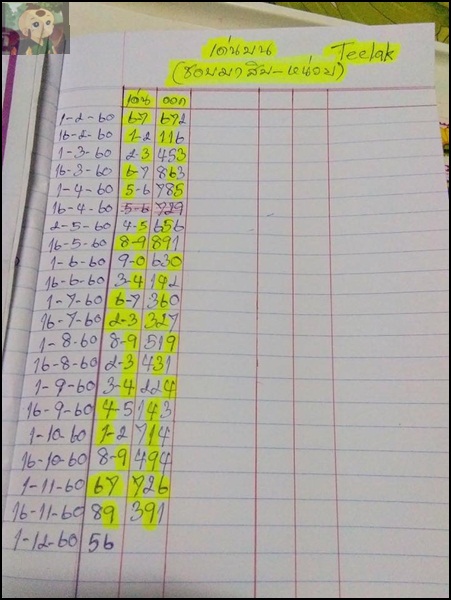 เด่นบน Teelak
(ชอบมาสิบ-หน่วย)
เด่น ออก
1-2-60 6-7 672
16-2-60 1-2 116
1-3-60 2-3 453
16-3-60 6-7 863
1-4-60 5-6 785
16-4-60 5-6 729
2-5-60 4-5 656
16-5-60 8-9 891
1-6-60 9-0 630
16-6-60 3-4 142
1-7-60 6-7 360
16-7-60 2-3 327
1-8-60 8-9 519
16-8-60 2-3 431
1-9-60 3-4 224
16-9-60 4-5 143
1-10-60 1-2 714
16-10-60 8-9 494
1-11-60 67 726
16-11-60 89 391
1-12-60 56